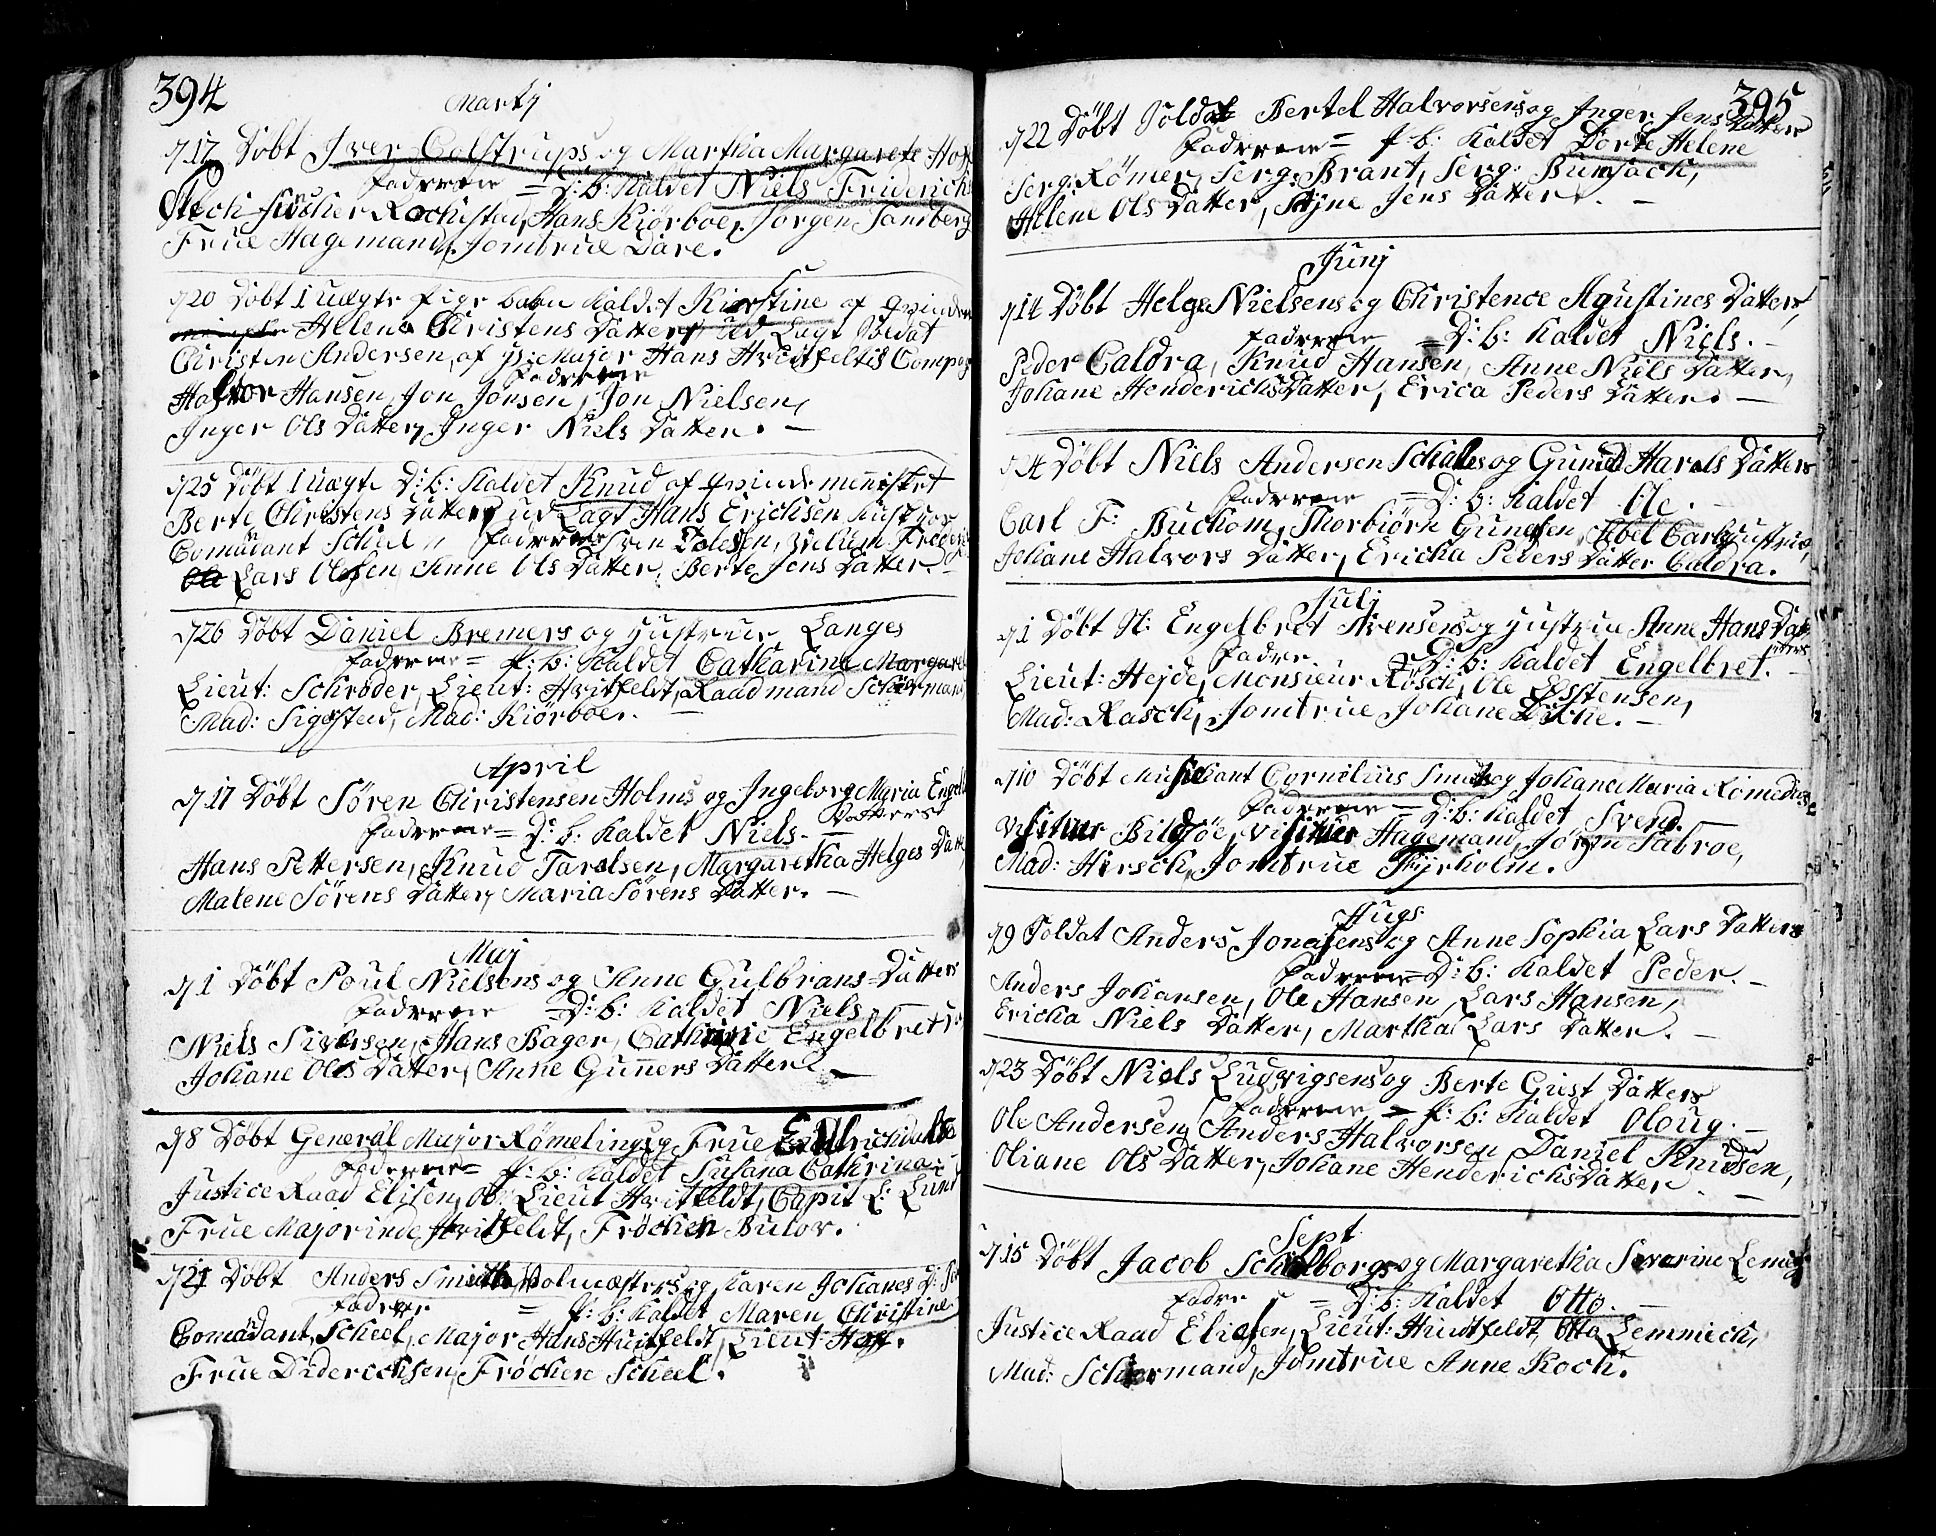 394
Martij
d 17 Döbt Iver Colstrups og Martha Margarete
Fadrene = D: b: Kaldet Niels Friderich
Hans Kiörboe, Jörgen Sandberg
Frue Hagemand, Jomfrue Dare.
d 20 Döbt 1 uægte Pige barn Kaldet Kirstine af Qvinde
Helene Christens Datter, ud Lagt Soldat
Christen Andersen, af Major Hans Hvitfeldts Compag
Fadrene
Halvor Hansen, Jon Jonsen, Jon Nielsen,
Inger Ols Datter, Inger Niels Datter. –
d 25 Döbt 1 uægte D: b: Kaldet Knud af Qvinde mennisket
Berte Christens Datter, ud Lagt Hans Erichsen
Comādant Scheel Fadrene
Ole Lars Olesen, Anne Ols Datter, Berte Jens Datter.
d 26 Döbt Daniel Bremers og Hustrue Langes
Fadrene = P: b: Kaldet Catharine Margare
Lieut: Schröder, Lieut: Hvitfeldt, Raadmand Schiermand
Mad: Sigstad, Mad: Kiörboe. –
April
d 17 Döbt Sören Christensen Holms og Ingeborg Maria Engel
Datters
Fadrene = D: b: Kaldet Niels. –
Hans Pettersen, Knud Tarelsen, Margaretha Helges Datte
Malene Sörens Datter, Maria Sörens Datter. –
Maij
d 1 Döbt Poul Nielsens og Anne Gulbrans Datters
Fadrene = D: b: Kaldet Niels.
Niels Siversen, Hans Bager, Cathrine Engelbrets
Johane Ols Datter, Anne Guñers Datter. –
d 8 Döbt General Major Römelings og Frue
Fadrene = P: b: Kaldet Susana Cathrina.
Justice Raad Elisen, Ob: Lieut Hvitfeldt, Capit L: Lund
Frue Majorinde Hvitfeldt, Fröchen Bulov.
d 21 Döbt Anders Smidth Skolmæsters og Karen Johanes D:
Fadrene = P: b: Kaldet Maren Christine
Comādant Scheel, Major Hans Hvitfeldt, Lieut: Hoff.
Frue Diderichsen, Fröchen Scheel.
395
d 22 Döbt Soldat Bertel Halvorsens og Inger Jens Datter
Fadrene = P: b: Kaldet Dorte Helene
Serg: Römer, Serg: Brant, Serg: Bumsack,
Helene Ols Datter, Stine Jens Datter. –
Junij
d 14 Döbt Helge Nielsens og Christence Agustines Datter,
Fadrene = D: b: Kaldet Niels. –
Peder Caldra, Knud Hansen, Anne Niels Datter,
Johane Henderichs Datter, Erica Peders Datter. –
d 24 Döbt Niels Andersen Schales og Gunild Harels Datters
Fadrene = D: b: Kaldet Ole. –
Carl F: Buckom, Thorbiörn Gundsen, Abel Carl
Johane Halvors Datter, Ericka Peders Datter Caldra.
Julij
d 1 Döbt H: Engelbret Svensens og Hustrue Anne Hans Dat
ters
Fadre = D: b: Kaldet Engelbret. –
Lieut: Hejde, Monsieur Rösch, Ole Estensen,
Mad: Rasch, Jomfrue Johane Diche. –
d 10 Döbt Musicant Cornelius Smidts og Johane Maria Romedahls
Fadrene = D: b: Kaldet Svend.
Visiteur Bildsöe, Visiteur Hagemand, Jörgen Sabroe,
Mad: Hirsch, Jomfrue Fyrholm.
Augs
d 9 Soldat Anders Jonasens og Anne Sophia Lars Datters
Fadrene = D: b: Kaldet Peder. –
Anders Johansen, Ole Hansen, Lars Hansen,
Ericka Niels Datter, Martha Lars Datter. –
d 23 Döbt Niels Ludvigsens og Berte Giest Datters
Fadrene = P: b: Kaldet Oloug. –
Ole Andersen, Anders Halvorsen, Daniel Knudsen,
Oliane Ols Datter, Johane Henderichs Datter. –
Sept
d 15 Döbt Jacob Schelborgs og Margaretha Severine Lemechs
Fadre = D: b: Kaldet Otto. –
Justice Raad Eliesen, Lieut: Hvidtfeldt, Otto Lemmech,
Mad: Schiermand, Jomfrue Anne Koch.